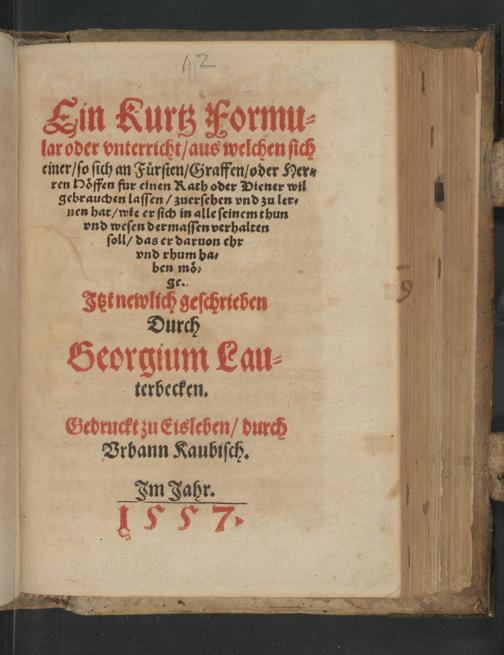 12
Ein Kurtz Formu-
lar oder vnterricht/aus welchen sich
einer/so sich an Fürsten/Graffen/oder Her-
ren Höffen fur einen Rath oder Diener wil
gebrauchen lassen/zuersehen vnd zu ler-
nen hat/wie er sich in alle seinem thun
vnd wesen dermassen verhalten
soll/das er daruon ehr
vnd rhum ha-
ben mö-
ge.
Jtzt newlich geschrieben
Durch
Georgium Lau-
terbecken.
Gedruckt zu Eisleben/durch
Vrbann Kaubisch.
Im Jahr.
1557.
9